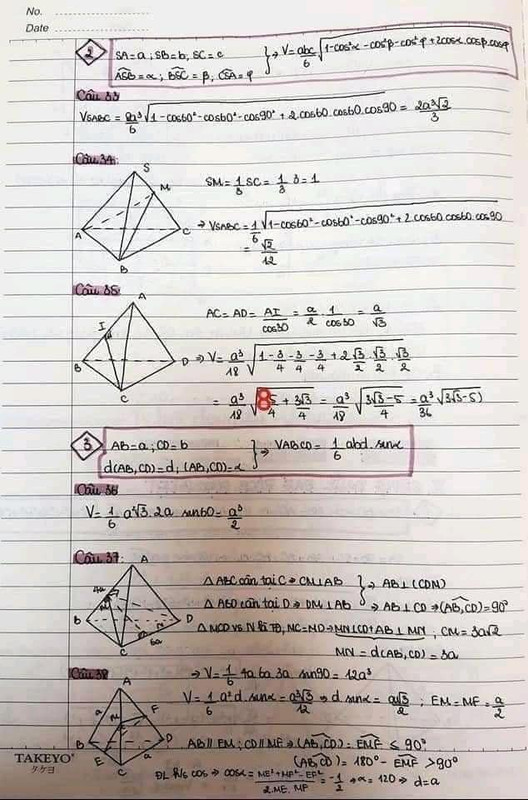 No.
Date
2
SA=a ; SB=b, SC=c
ASB=α ; BSC=β, CSA=φ
→ V=abc/6 √(1-cos²α-cos²β-cos²φ+2cosα.cosβ.cosφ)
Câu 33
VSABC = 8a³/6 √(1-cos60²-cos60²-cos90²+2.cos60.cos60.cos90) = 2a³√2/3
Câu 34:
S
M
A
C
B
SM=1/3 SC=1/3 3=1
→ VSABC=1/6 √(1-cos60²-cos60²-cos90²+2cos60cos60.cos90)
=√2/12
Câu 35
A
I
B
D
C
AC=AD=AI/cos30=a/2.1/cos30=a/√3
→ V=a³/18 √(1-3/4-3/4-3/4+2√3/2.√3/2.√3/2)
=a³/18 √(8 5/4+3√3/4)=a³/18 √((3√3-5)/4)=a³/36 √(3√3-5)
3
AB=a ; CD=b
d(AB,CD)=d; (AB,CD)=α
→ VABCD=1/6 abd.sinα
Câu 36
V=1/6 a²√3.2a sin60=a³/2
Câu 37:
A
4a
B
D
C
6a
△ABC cân tại C→CM⊥AB
△ABD cân tại D→DM⊥AB
→ AB⊥(CDM)
→ AB⊥CD→(AB,CD)=90°
MN⊥CD+AB⊥MN, CM=3a√2
MN=d(AB,CD)=3a
→ V=1/6 4a 6a 3a sin90=12a³
Câu 38
A
a
M
F
B
D
E
a
C
V=1/6 a²d.sinα=a³√3/12→d sinα=a√3/2 ; EM=MF=a/2
AB∥EM; CD∥MF→(AB,CD)=EMF ≤90°
(AB,CD)=180°-EMF >90°
ĐL h/s cos→cosα=(ME²+MF²-EF²)/(2.ME.MF)=-1/2→α=120→d=a
TAKEYO
タケヨ